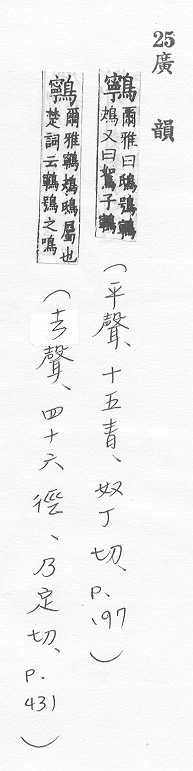 25廣韻
鸋爾雅曰鴟鴞鸋
鴂又曰鴽子鸋
(平聲、十五青、奴丁切、P.197)
鸋爾雅鸋鴂鴟屬也
楚詞云鸋鴞之鳴
(去聲、四十六徑、乃定切、P.431)